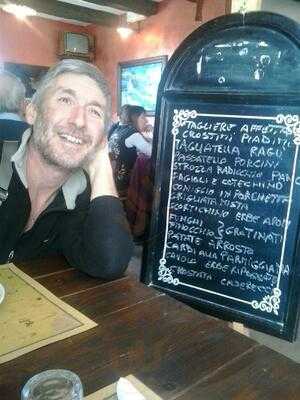 TAGLIERE AFFETTATI
CROSTINI PIADINA
TAGLIATELLA RAGÙ
PASSATELLO PORCINI
STROZZA RADICCHIO PANC
FAGIOLI E COTECHINO
CONIGLIO IN PORCHETTA
GRIGLIATA MISTA
SCORTICHINO ERBE AROM
FUNGHI
FINOCCHIO GRATINATI
PATATE ARROSTO
CARDI ALLA PARMIGIANA
CAVOLO ERBE RIPASSATE
CROSTATA